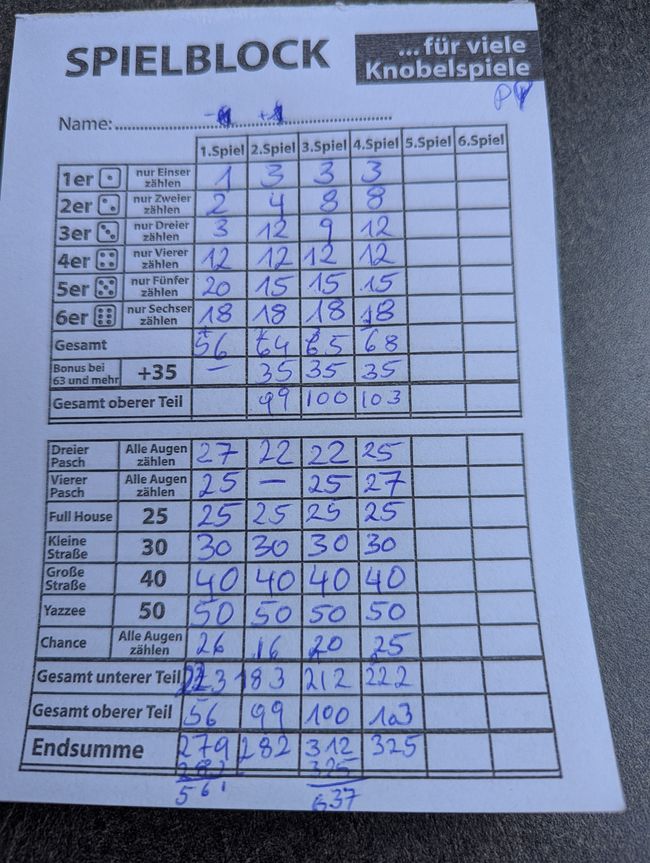 SPIELBLOCK
... für viele
Knobelspiele
Name:
1.Spiel 2.Spiel 3.Spiel 4.Spiel 5.Spiel 6.Spiel
1er nur Einser zählen 1 3 3 3
2er nur Zweier zählen 2 4 8 8
3er nur Dreier zählen 3 12 9 12
4er nur Vierer zählen 12 12 12 12
5er nur Fünfer zählen 20 15 15 15
6er nur Sechser zählen 18 18 18 18
Gesamt 56 64 65 68
Bonus bei 63 und mehr +35 — 35 35 35
Gesamt oberer Teil 99 100 103
Dreier Pasch Alle Augen zählen 27 22 22 25
Vierer Pasch Alle Augen zählen 25 — 25 27
Full House 25 25 25 25 25
Kleine Straße 30 30 30 30 30
Große Straße 40 40 40 40 40
Yazzee 50 50 50 50 50
Chance Alle Augen zählen 26 16 20 25
Gesamt unterer Teil 223 183 212 222
Gesamt oberer Teil 56 99 100 103
Endsumme 279 282 312 325
282 325
561 637